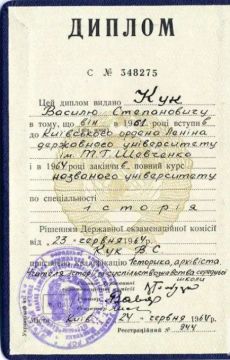 ДИПЛОМ
С № 348275
Цей диплом видано Кук
Василю Степановичу
в тому, що він в 1961 році вступив
до Київського ордена Леніна
державного університету
ім. Т.Г. Шевченко
і в 1964 році закінчив повний курс
названого університету
по спеціальності
історія
Рішенням Державної екзаменаційної комісії
від 23 червня 1964 р.
Кук В.С.
кваліфікацію історика, архівіста
вчителя історії і суспільствознавства середньої
школи
Київ червня 1964 р.
Реєстраційний № 944